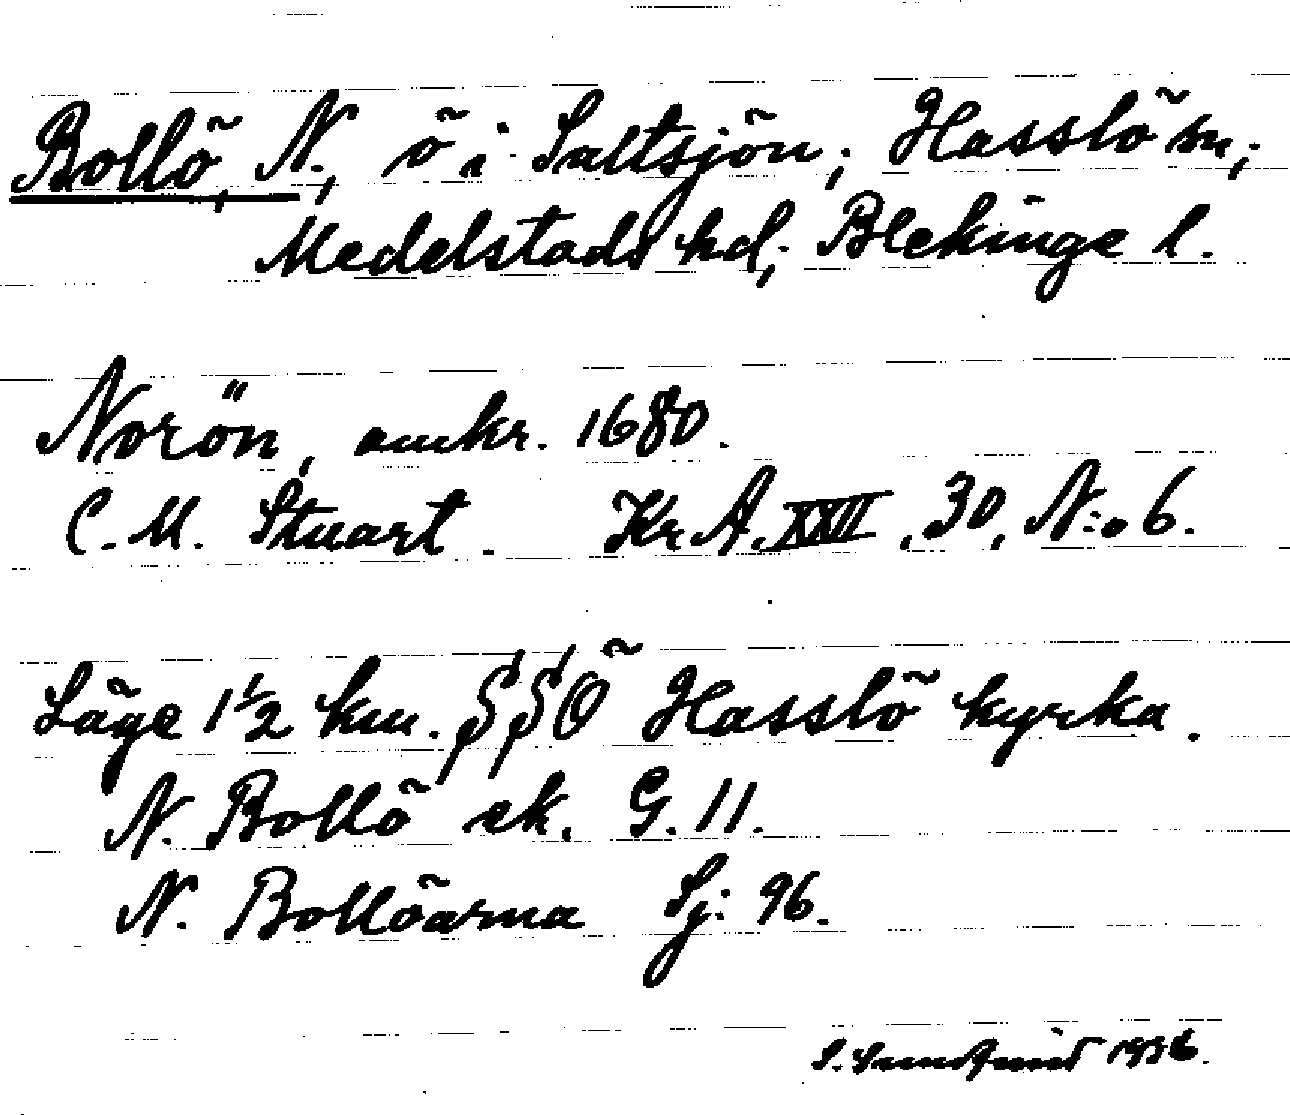 Bollö, N., ö i Saltsjön; Hasslö sn;
Medelstads hd; Blekinge l.
Norön, omkr. 1680.
C. M. Stuart. Kr. A. XXII, 30, N:o 6.
Läge 1 1/2 km. SSÖ Hasslö kyrka.
N. Bollö ek. G. 11.
N. Bollöarna Sj: 96.
S. Sundquist 1936.